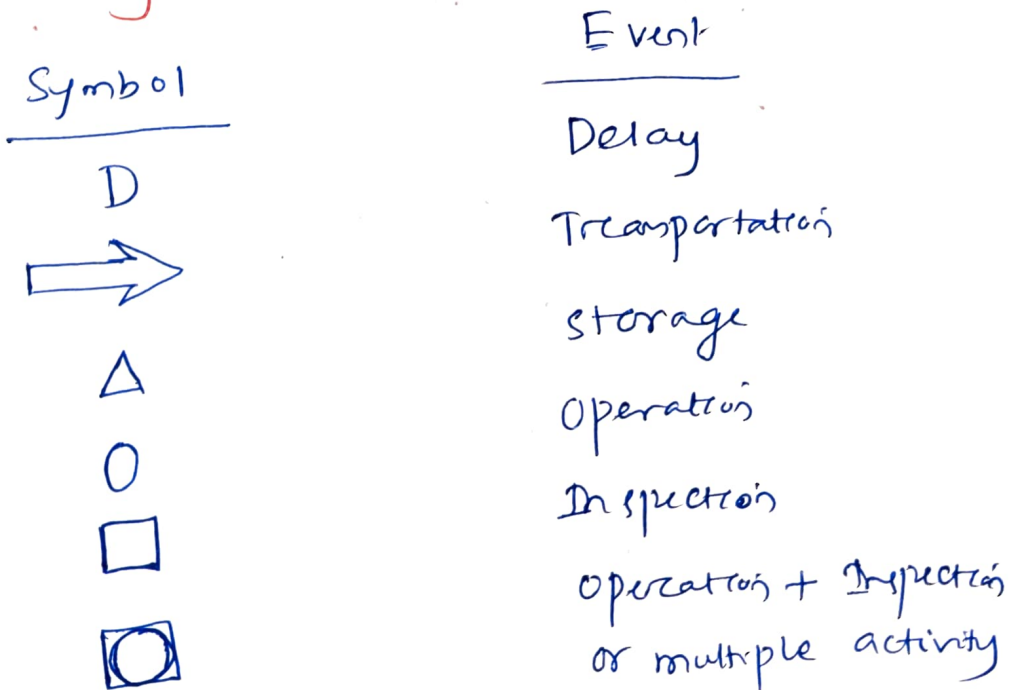 Symbol Event
D Delay
Transportation
storage
operation
Inspection
operation + Inspection
or multiple activity